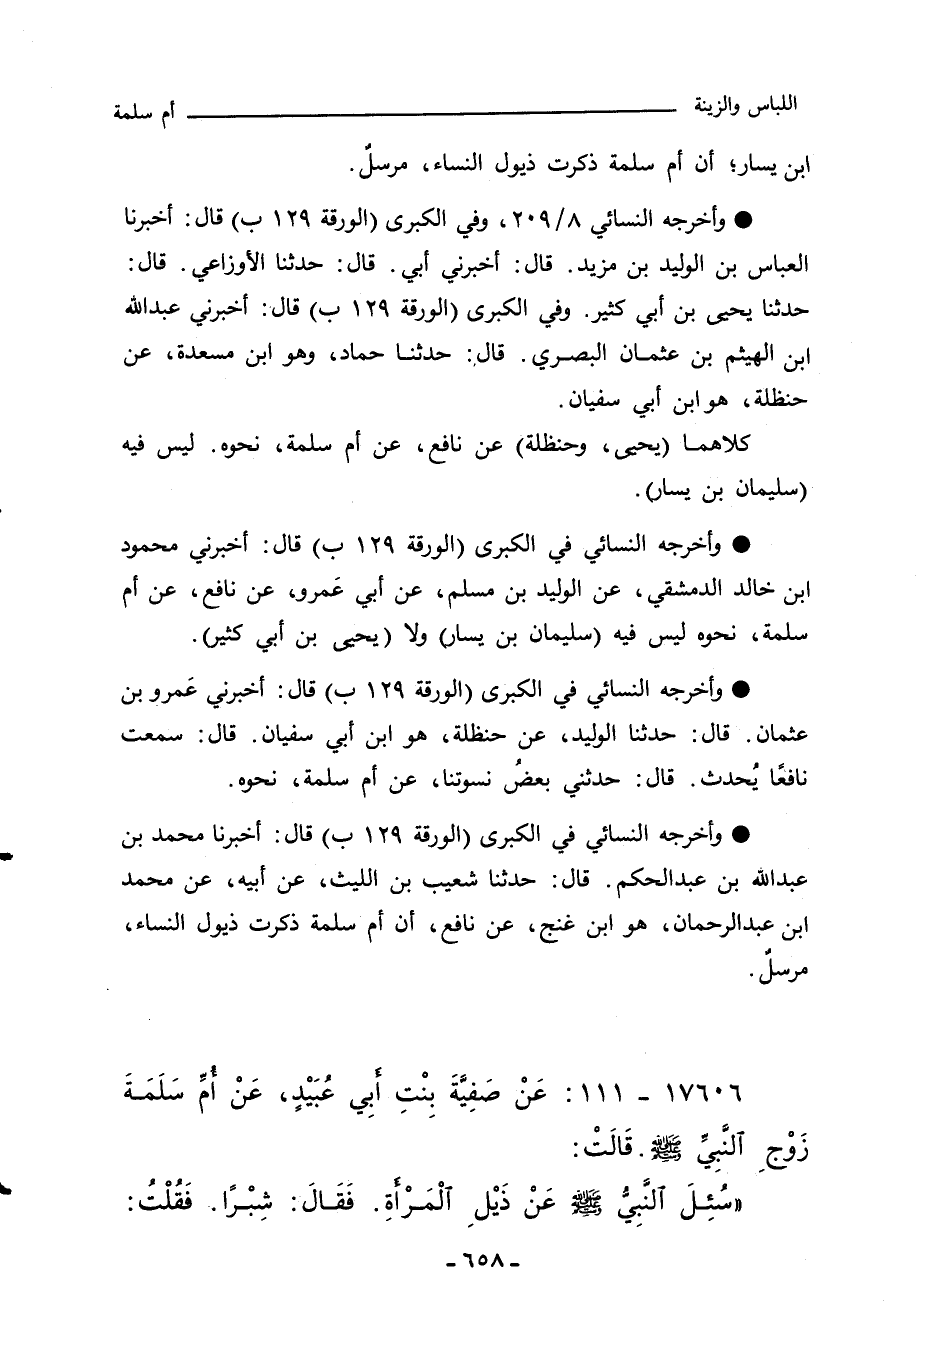 اللباس والزينة ــــــــــــــــــــ أم سلمة
ابن يسار؛ أن أم سلمة ذكرت ذيول النساء، مرسلٌ.
● وأخرجه النسائي ٢٠٩/٨، وفي الكبرى (الورقة ١٢٩ ب) قال: أخبرنا
العباس بن الوليد بن مزيد. قال: أخبرني أبي. قال: حدثنا الأوزاعي. قال:
حدثنا يحيى بن أبي كثير. وفي الكبرى (الورقة ١٢٩ ب) قال: أخبرني عبدالله
ابن الهيثم بن عثمان البصري. قال: حدثنا حماد، وهو ابن مسعدة، عن
حنظلة، هو ابن أبي سفيان.
كلاهما (يحيى، وحنظلة) عن نافع، عن أم سلمة، نحوه. ليس فيه
(سليمان بن يسار).
● وأخرجه النسائي في الكبرى (الورقة ١٢٩ ب) قال: أخبرني محمود
ابن خالد الدمشقي، عن الوليد بن مسلم، عن أبي عَمرو، عن نافع، عن أم
سلمة، نحوه ليس فيه (سليمان بن يسار) ولا (يحيى بن أبي كثير).
● وأخرجه النسائي في الكبرى (الورقة ١٢٩ ب) قال: أخبرني عَمرو بن
عثمان. قال: حدثنا الوليد، عن حنظلة، هو ابن أبي سفيان. قال: سمعت
نافعًا يُحدث. قال: حدثني بعضُ نسوتنا، عن أم سلمة، نحوه.
● وأخرجه النسائي في الكبرى (الورقة ١٢٩ ب) قال: أخبرنا محمد بن
عبدالله بن عبدالحكم. قال: حدثنا شعيب بن الليث، عن أبيه، عن محمد
ابن عبدالرحمان، هو ابن غنج، عن نافع، أن أم سلمة ذكرت ذيول النساء،
مرسلٌ.
١٧٦٠٦ - ١١١: عَنْ صَفِيَّةَ بِنْتِ أَبِي عُبَيْدٍ، عَنْ أُمِّ سَلَمَةَ
زَوْجِ ٱلنَّبِيِّ ﷺ. قَالَتْ:
«سُئِلَ ٱلنَّبِيُّ ﷺ عَنْ ذَيْلِ ٱلْمَرْأَةِ. فَقَالَ: شِبْرًا. فَقُلْتُ:
- ٦٥٨ -